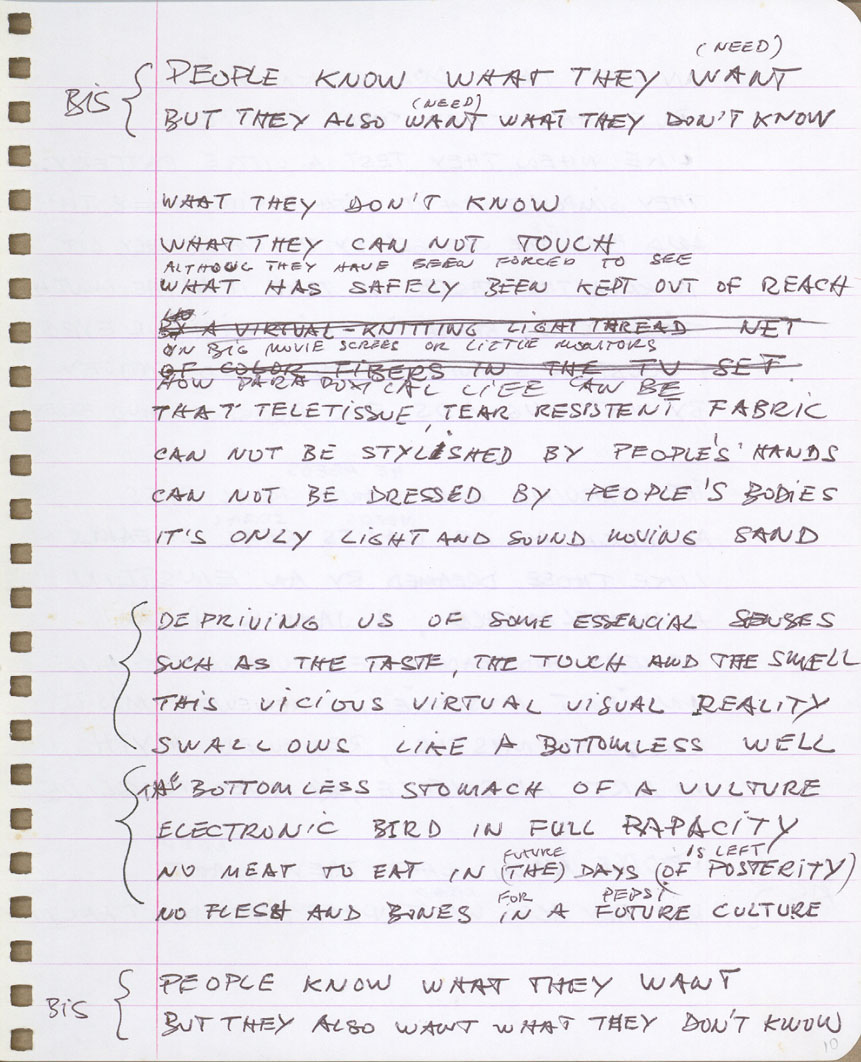 (NEED)
BIS { PEOPLE KNOW WHAT THEY WANT
(NEED)
BUT THEY ALSO WANT WHAT THEY DON'T KNOW
WHAT THEY DON'T KNOW
WHAT THEY CAN NOT TOUCH
ALTHOUG THEY HAVE BEEN FORCED TO SEE
WHAT HAS SAFELY BEEN KEPT OUT OF REACH
BY A VIRTUAL-KNITTING LIGHT THREAD NET
ON BIG MOVIE SCREES OR LITTLE MONITORS
OF COLOR FIBERS IN THE TV SET
HOW PARADOXICAL LIFE CAN BE
THAT TELETISSUE, TEAR RESISTENT FABRIC
CAN NOT BE STYLISHED BY PEOPLE'S HANDS
CAN NOT BE DRESSED BY PEOPLE'S BODIES
IT'S ONLY LIGHT AND SOUND MOVING SAND
DEPRIVING US OF SOME ESSENCIAL SENSES
SUCH AS THE TASTE, THE TOUCH AND THE SMELL
THIS VICIOUS VIRTUAL VISUAL REALITY
SWALLOWS LIKE A BOTTOMLESS WELL
THE BOTTOMLESS STOMACH OF A VULTURE
ELECTRONIC BIRD IN FULL RAPACITY
FUTURE IS LEFT
NO MEAT TO EAT IN (THE) DAYS (OF POSTERITY)
FOR PEPSI
NO FLESH AND BONES IN A FUTURE CULTURE
BIS { PEOPLE KNOW WHAT THEY WANT
BUT THEY ALSO WANT WHAT THEY DON'T KNOW
10